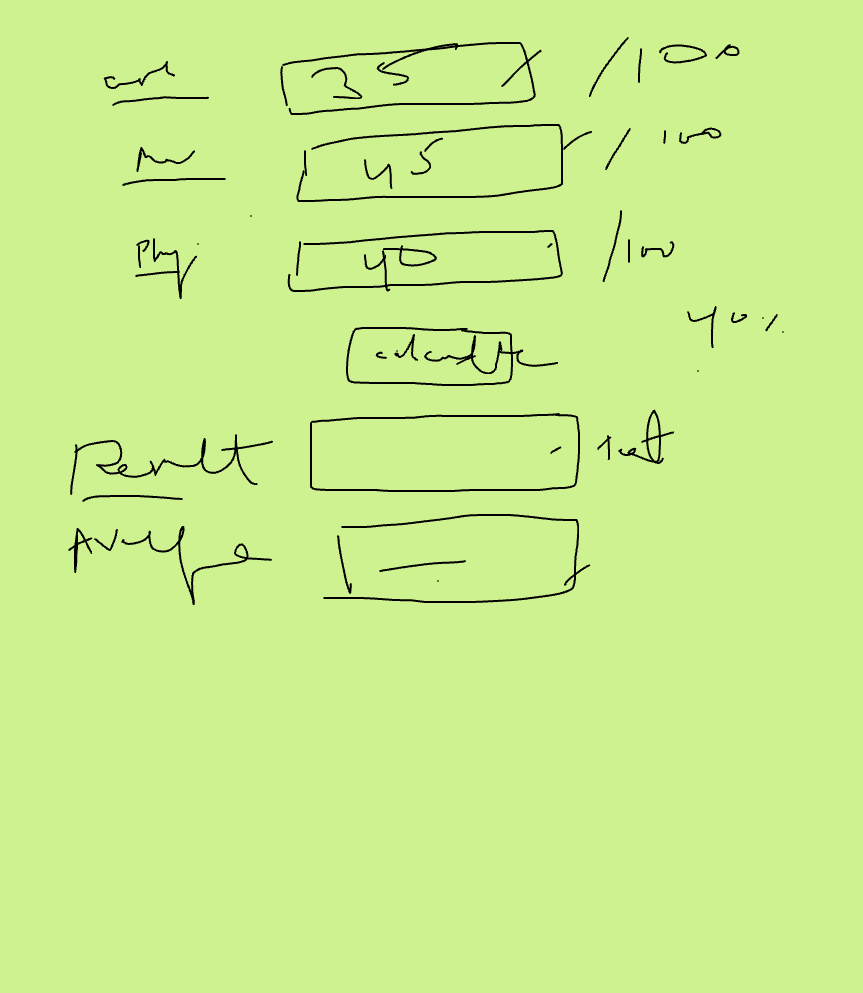 35 /100
45 /100
Phy 40 /100
40%
calculate
Result
Average